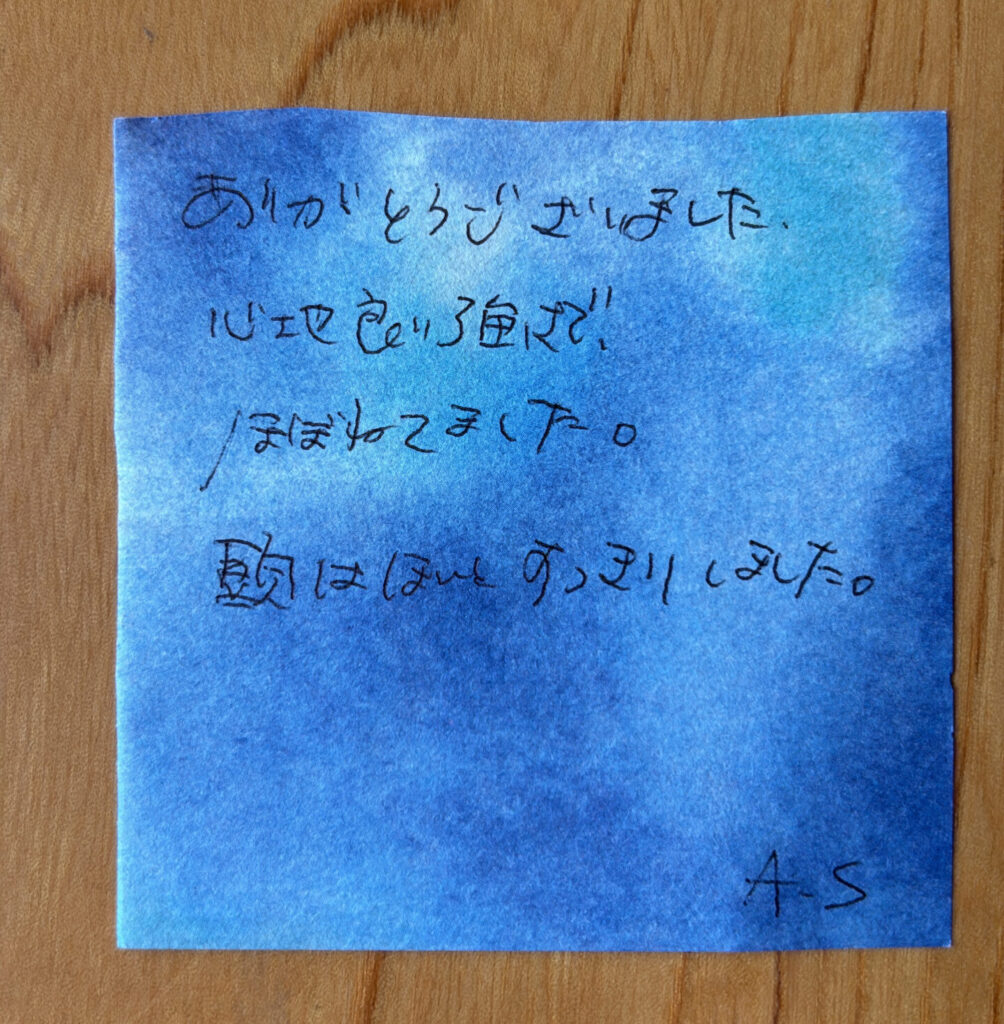 ありがとうございました、
心地良い強さで、
ほぼねてました。
頭はほんとすっきりしました。
A-S